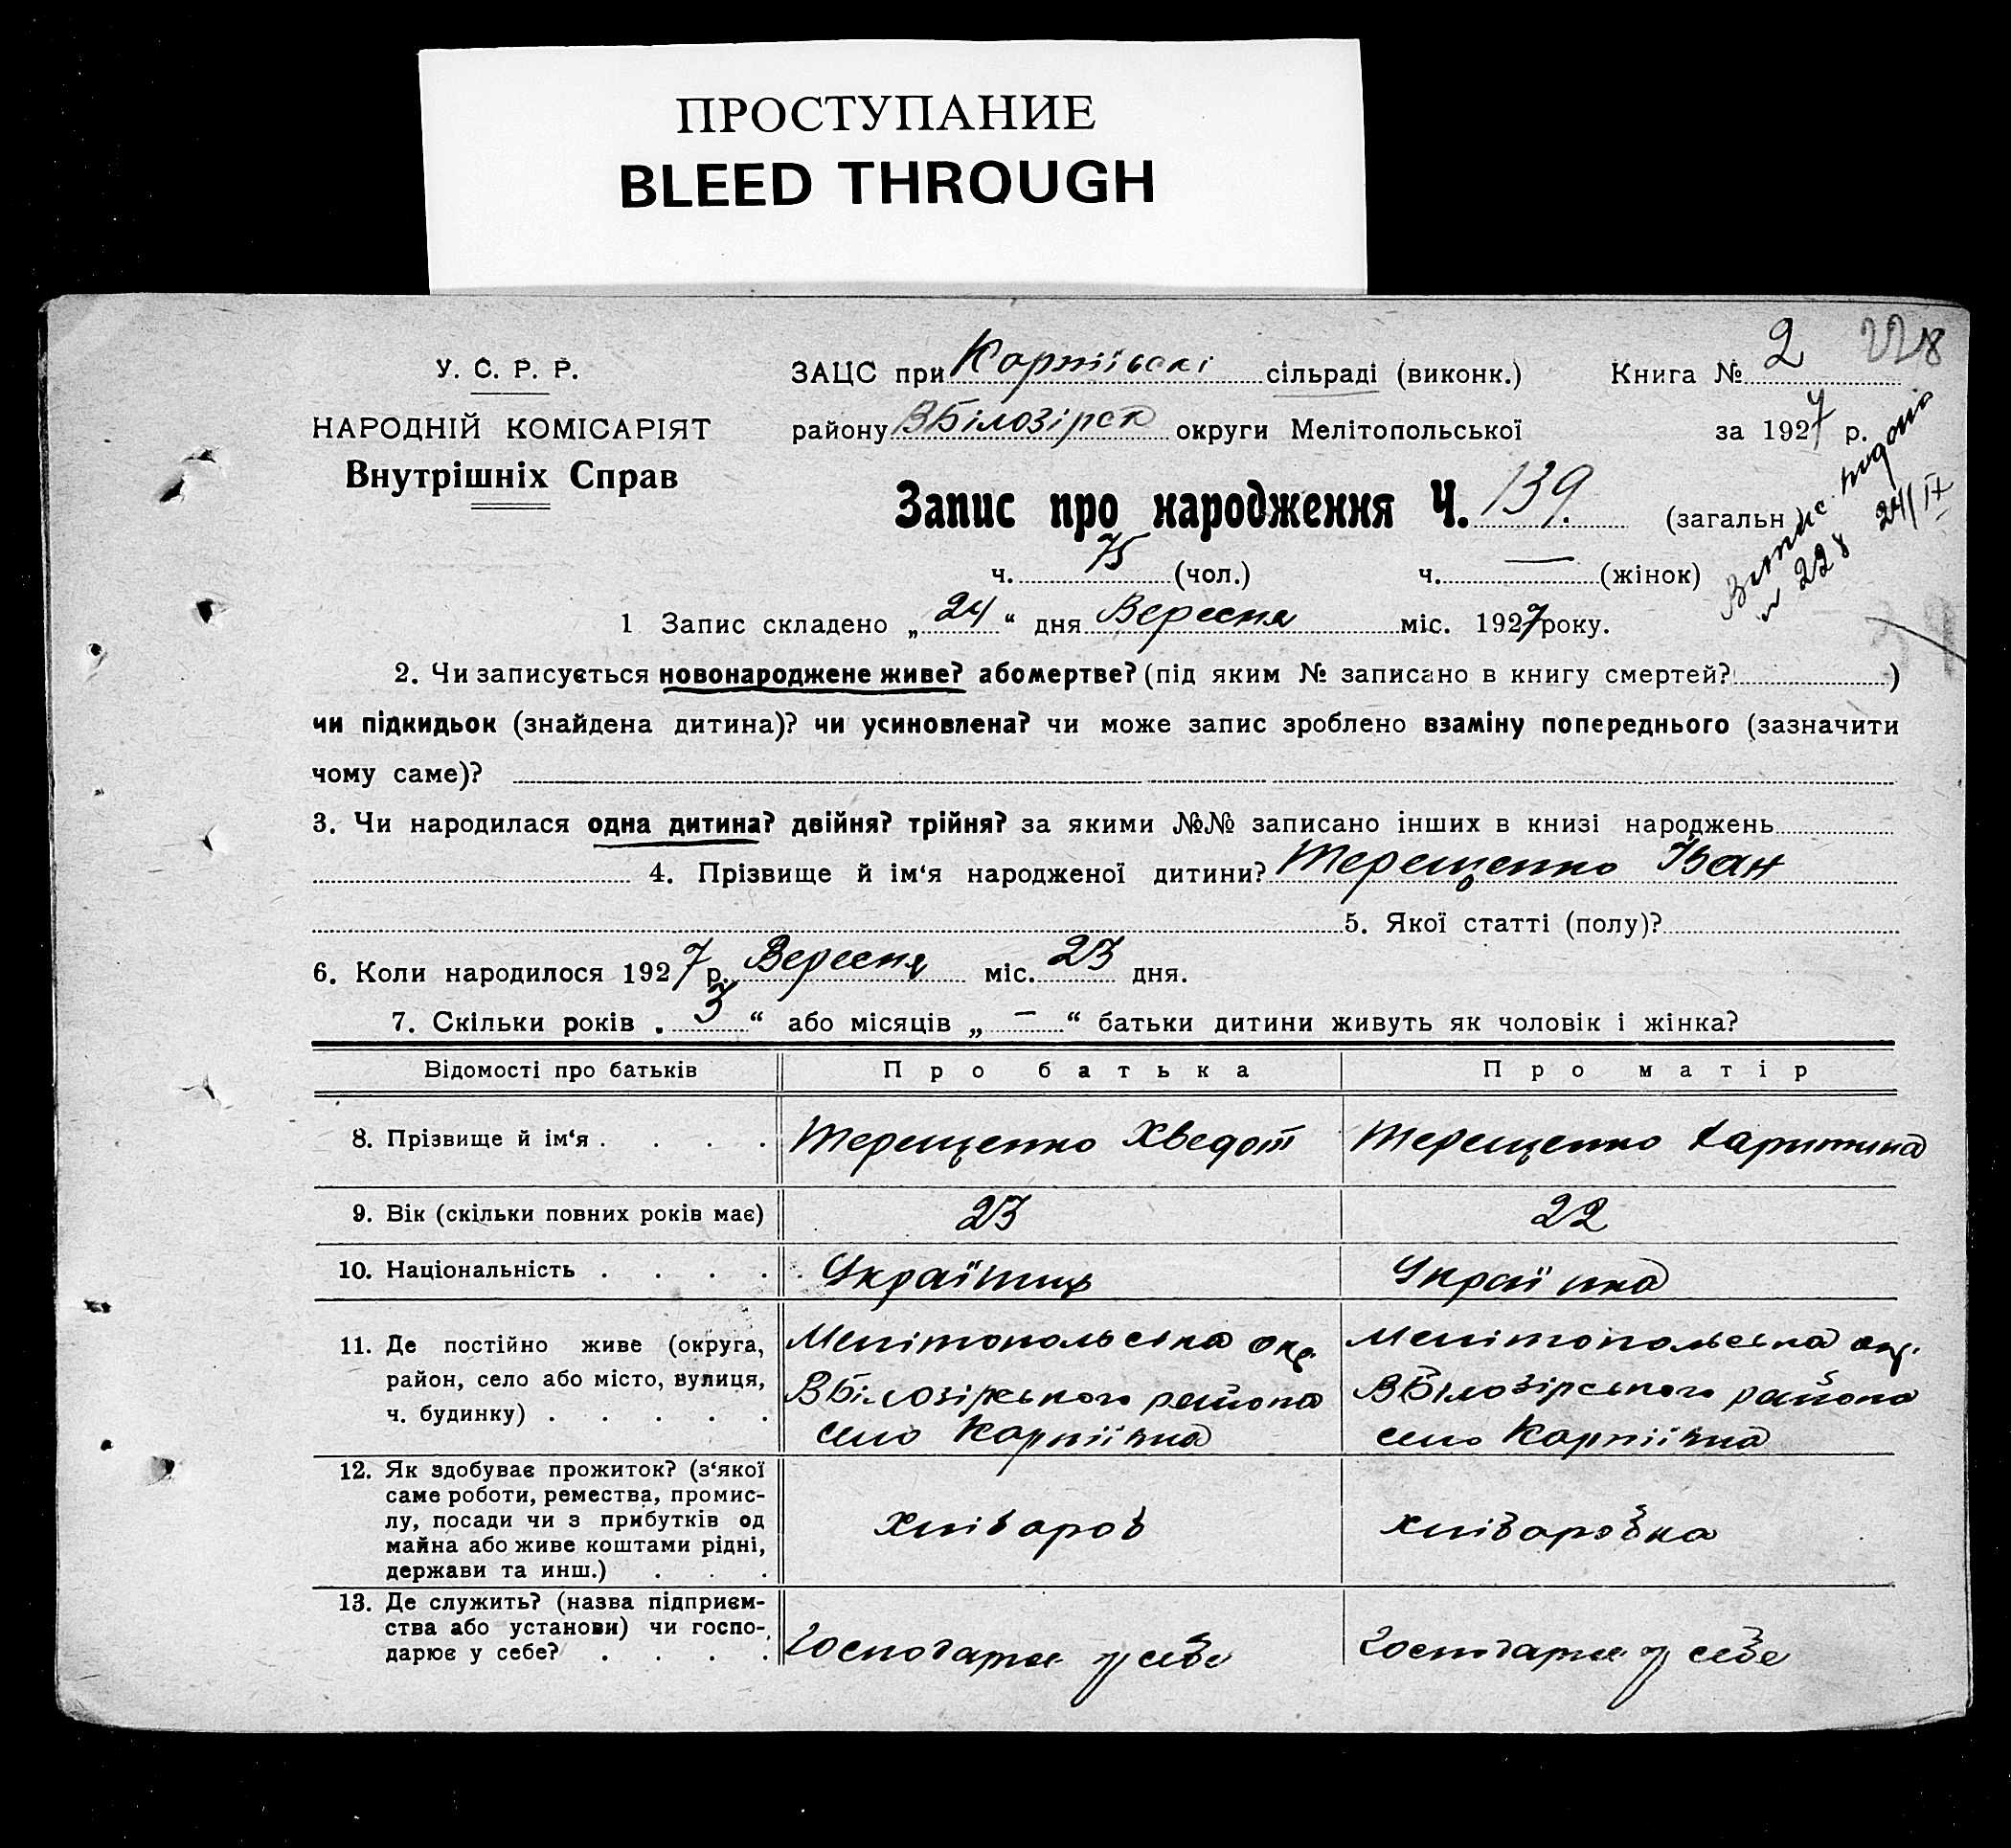 ПРОСТУПАНИЕ
BLEED THROUGH
228
У. С. Р. Р.
НАРОДНІЙ КОМІСАРІЯТ
Внутрішніх Справ
ЗАЦС при Карпіївскі сільраді (виконк.) Книга № 2
району ВБілозірск округи Мелітопольської за 1927 р.
Запис про народження Ч. 139. (загальн.)
ч. 75 (чол.) ч. — (жінок)
Випис видано
228 24/IX
1 Запис складено „24“ дня Вересня міс. 1927 року.
2. Чи записується новонароджене живе? або мертве? (під яким № записано в книгу смертей? )
чи підкидьок (знайдена дитина)? чи усиновлена? чи може запис зроблено взаміну попереднього (зазначити
чому саме)?
3. Чи народилася одна дитина? двійня? трійня? за якими №№ записано інших в книзі народжень
4. Прізвище й ім‘я народженої дитини? Терещенко Іван
5. Якої статті (полу)?
6. Коли народилося 1927 р. Вересня міс. 23 дня.
7. Скільки років „3“ або місяців „—“ батьки дитини живуть як чоловік і жінка?
Відомості про батьків Про батька Про матір
8. Прізвище й ім‘я . . . . Терещенко Хведот Терещенко Харитина
9. Вік (скільки повних років має) 23 22
10. Національність . . . . Українць Українка
11. Де постійно живе (округа, Мелітопольська окр. Мелітопольська окр.
район, село або місто, вулиця, ВБілозірського района ВБілозірського района
ч. будинку) . . . . . село Карпіївка село Карпіївка
12. Як здобуває прожиток? (з‘якої
саме роботи, ремества, промис-
лу, посади чи з прибутків од хліборов хліборовка
майна або живе коштами рідні,
держави та инш.) . . .
13. Де служить? (назва підприєм-
ства або установи) чи госпо-
дарює у себе? . . . . Господарює у себе Господарює у себе